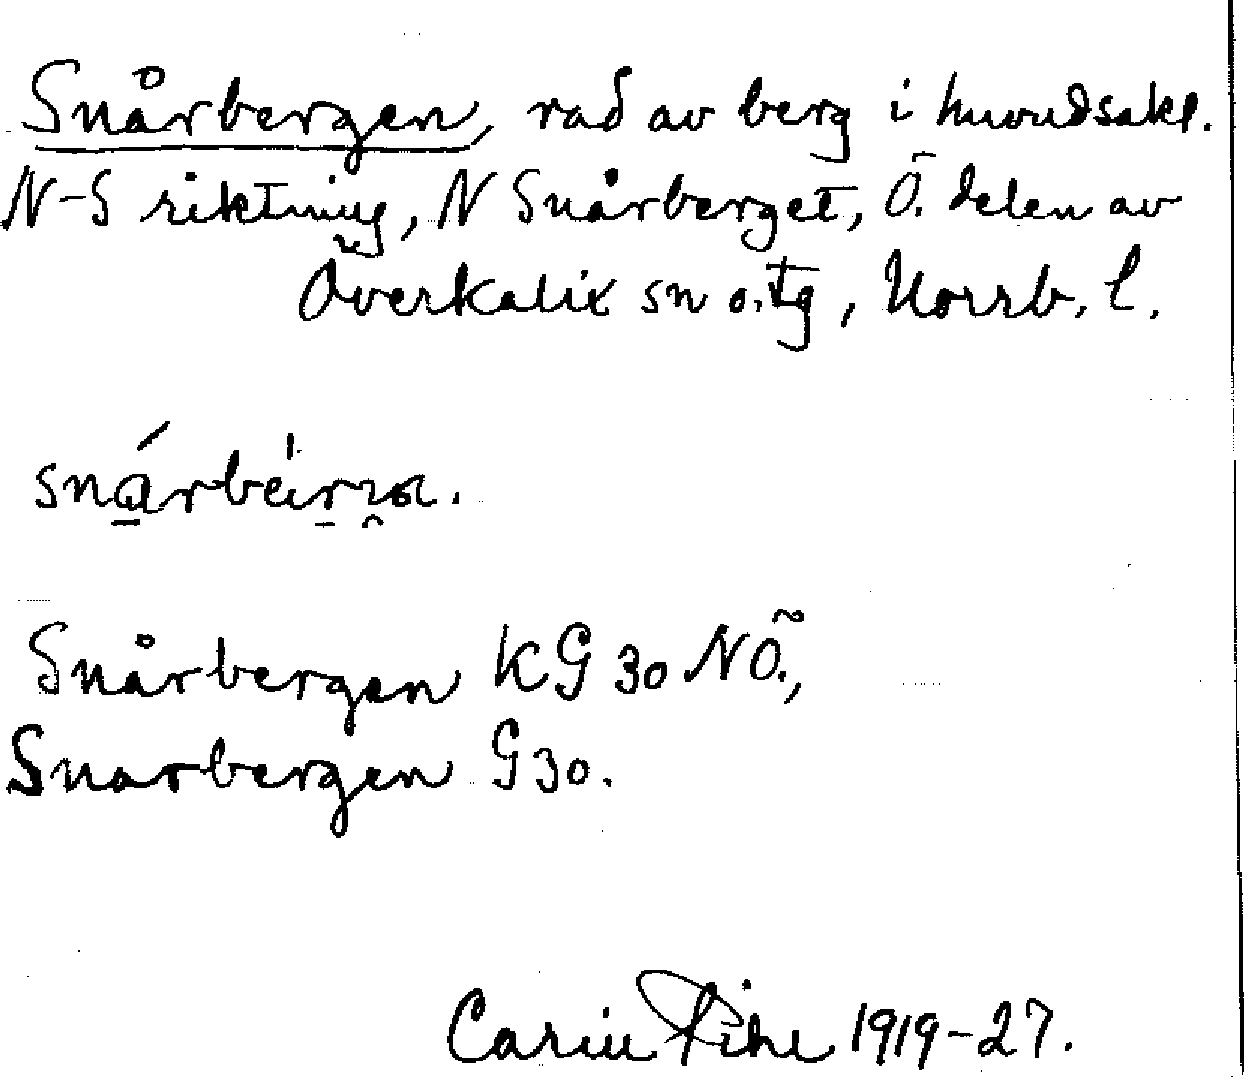 Snårbergen, rad av berg i huvudsakl.
N-S riktning, N Snårberget, Ö. delen av
Överkalix sn o. tg, Norrb. l.
Snårbergen KG 30 NÖ.,
Snarbergen G 30.
Carin Pihl 1919-27.